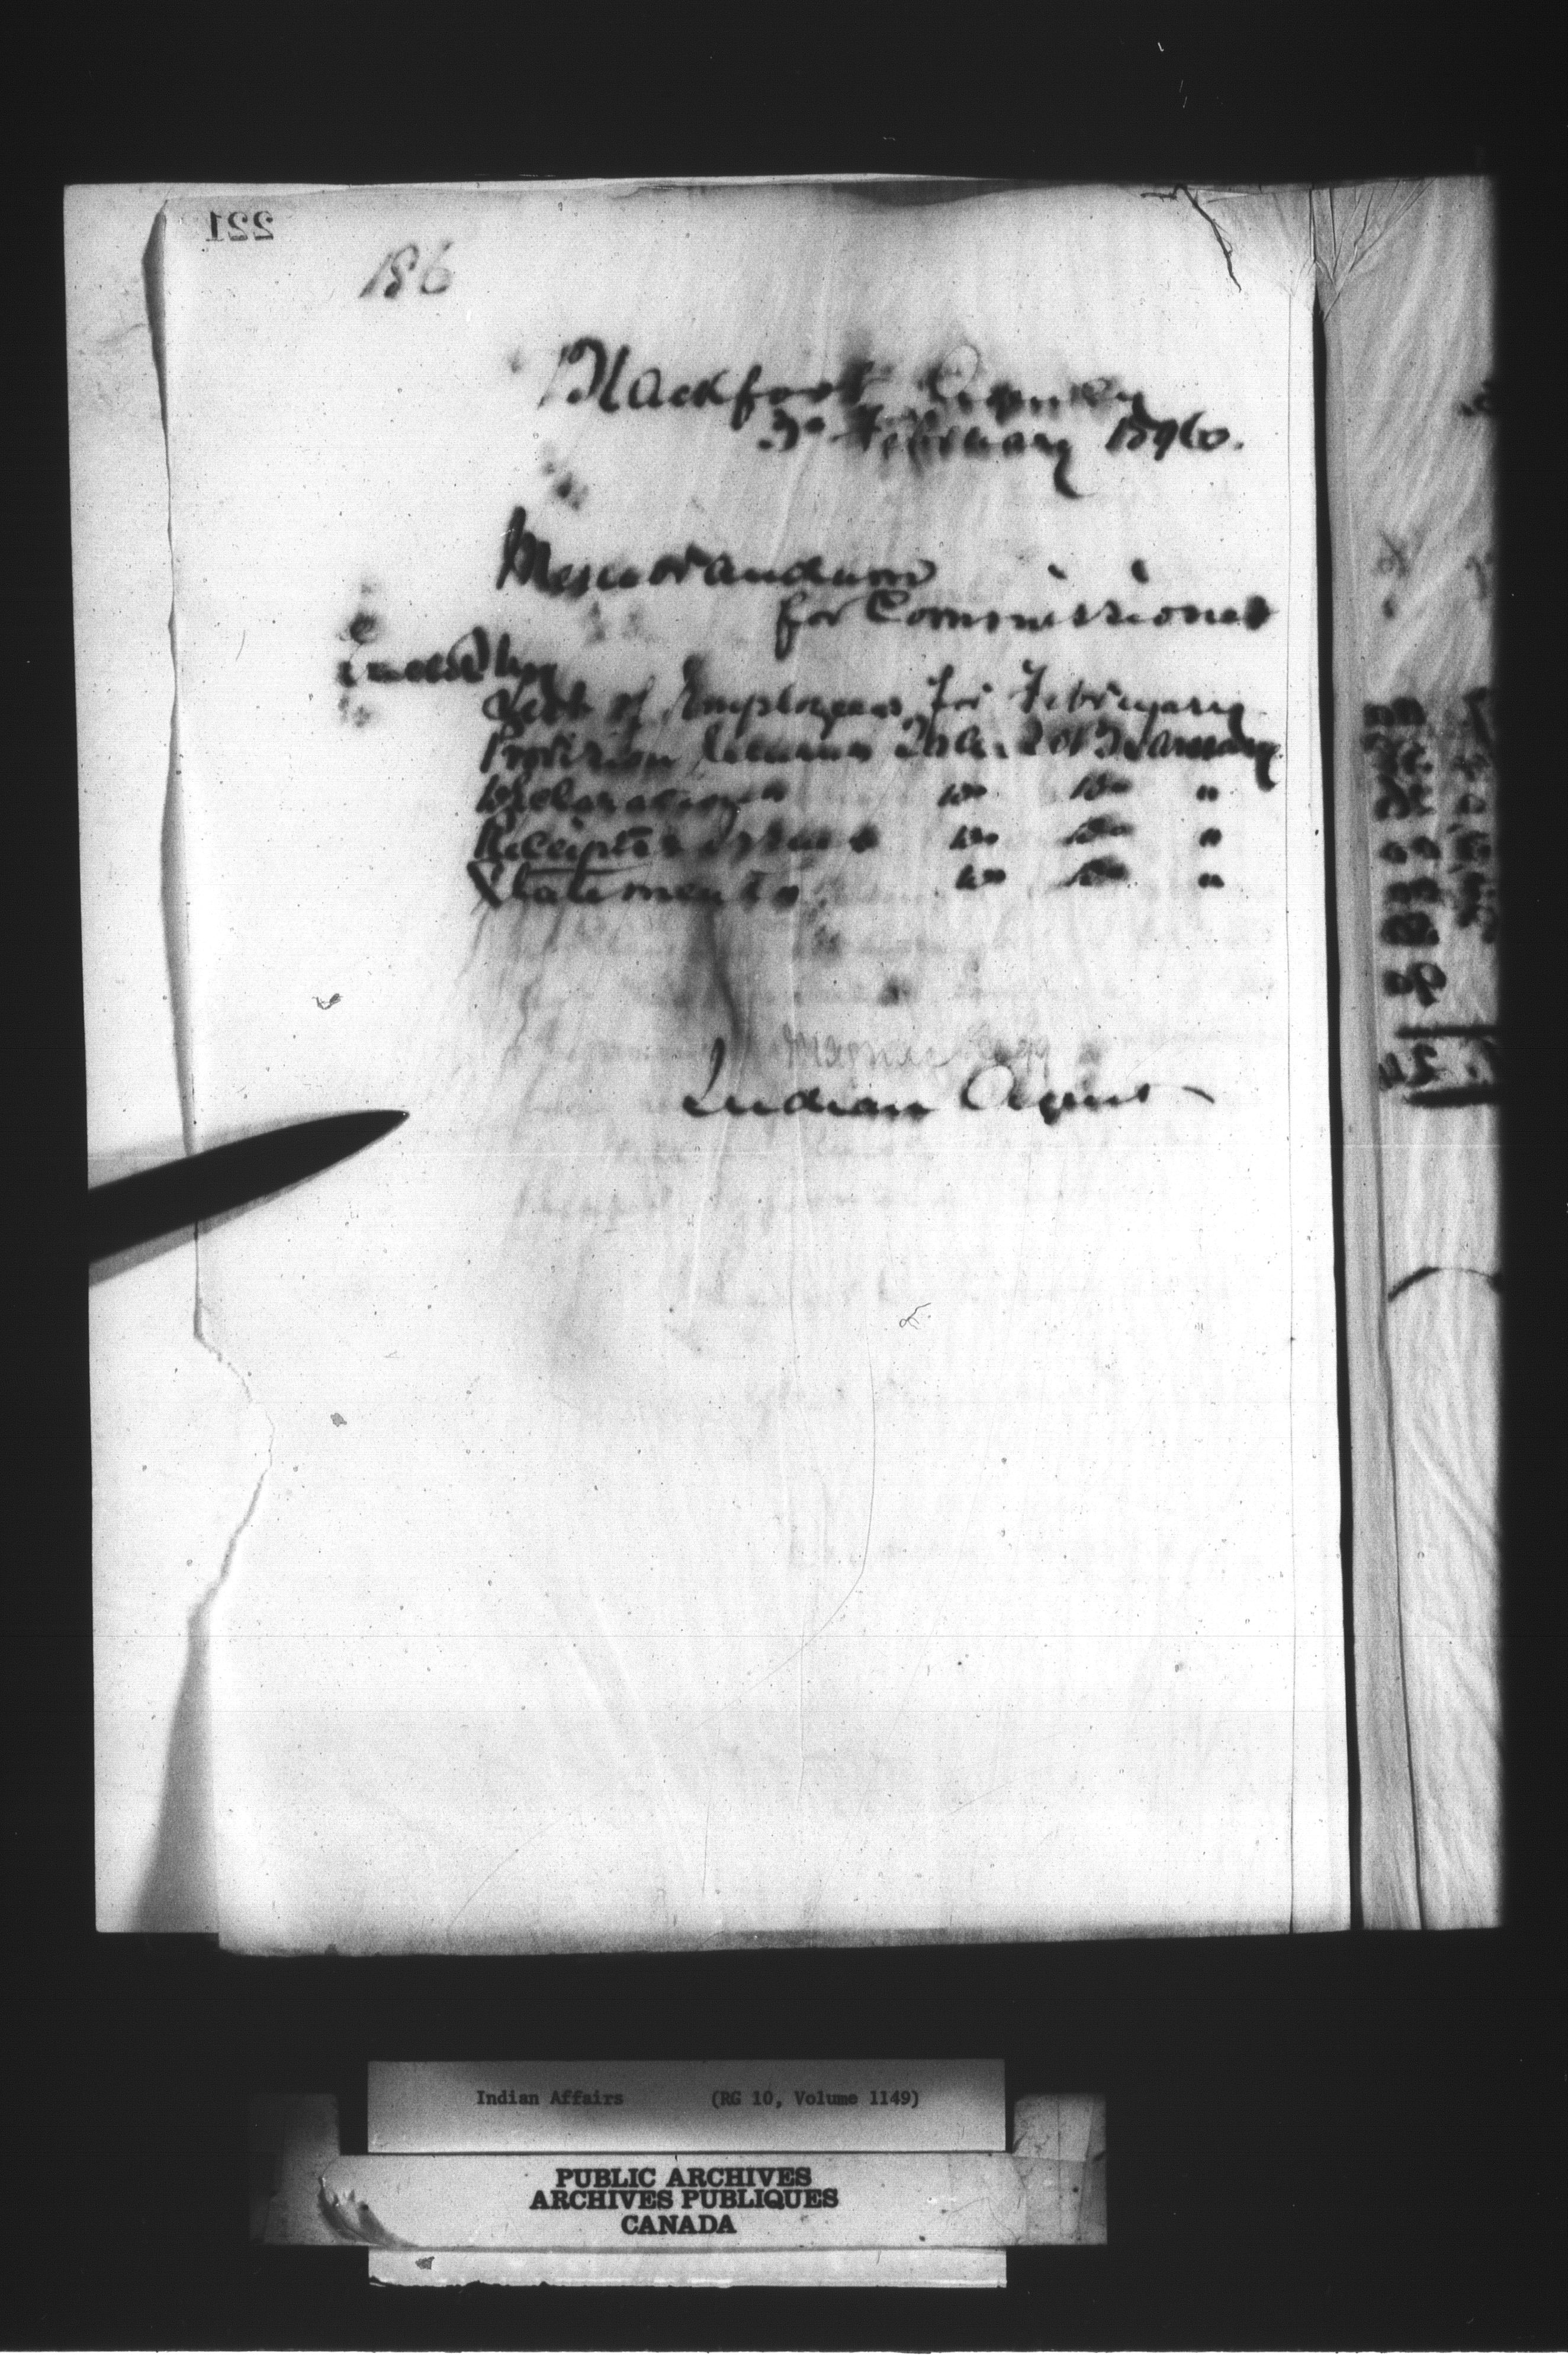 221
186
Blackfoot Agency
3d February 1896.
Memorandum
for Commissioner
List of Employees for February
Provision Returns January
Declarations Do Do "
Receipts & Issues Do Do "
Statements Do Do "
Magnus Begg
Indian Agent
Indian Affairs (RG 10, Volume 1149)
PUBLIC ARCHIVES
ARCHIVES PUBLIQUES
CANADA